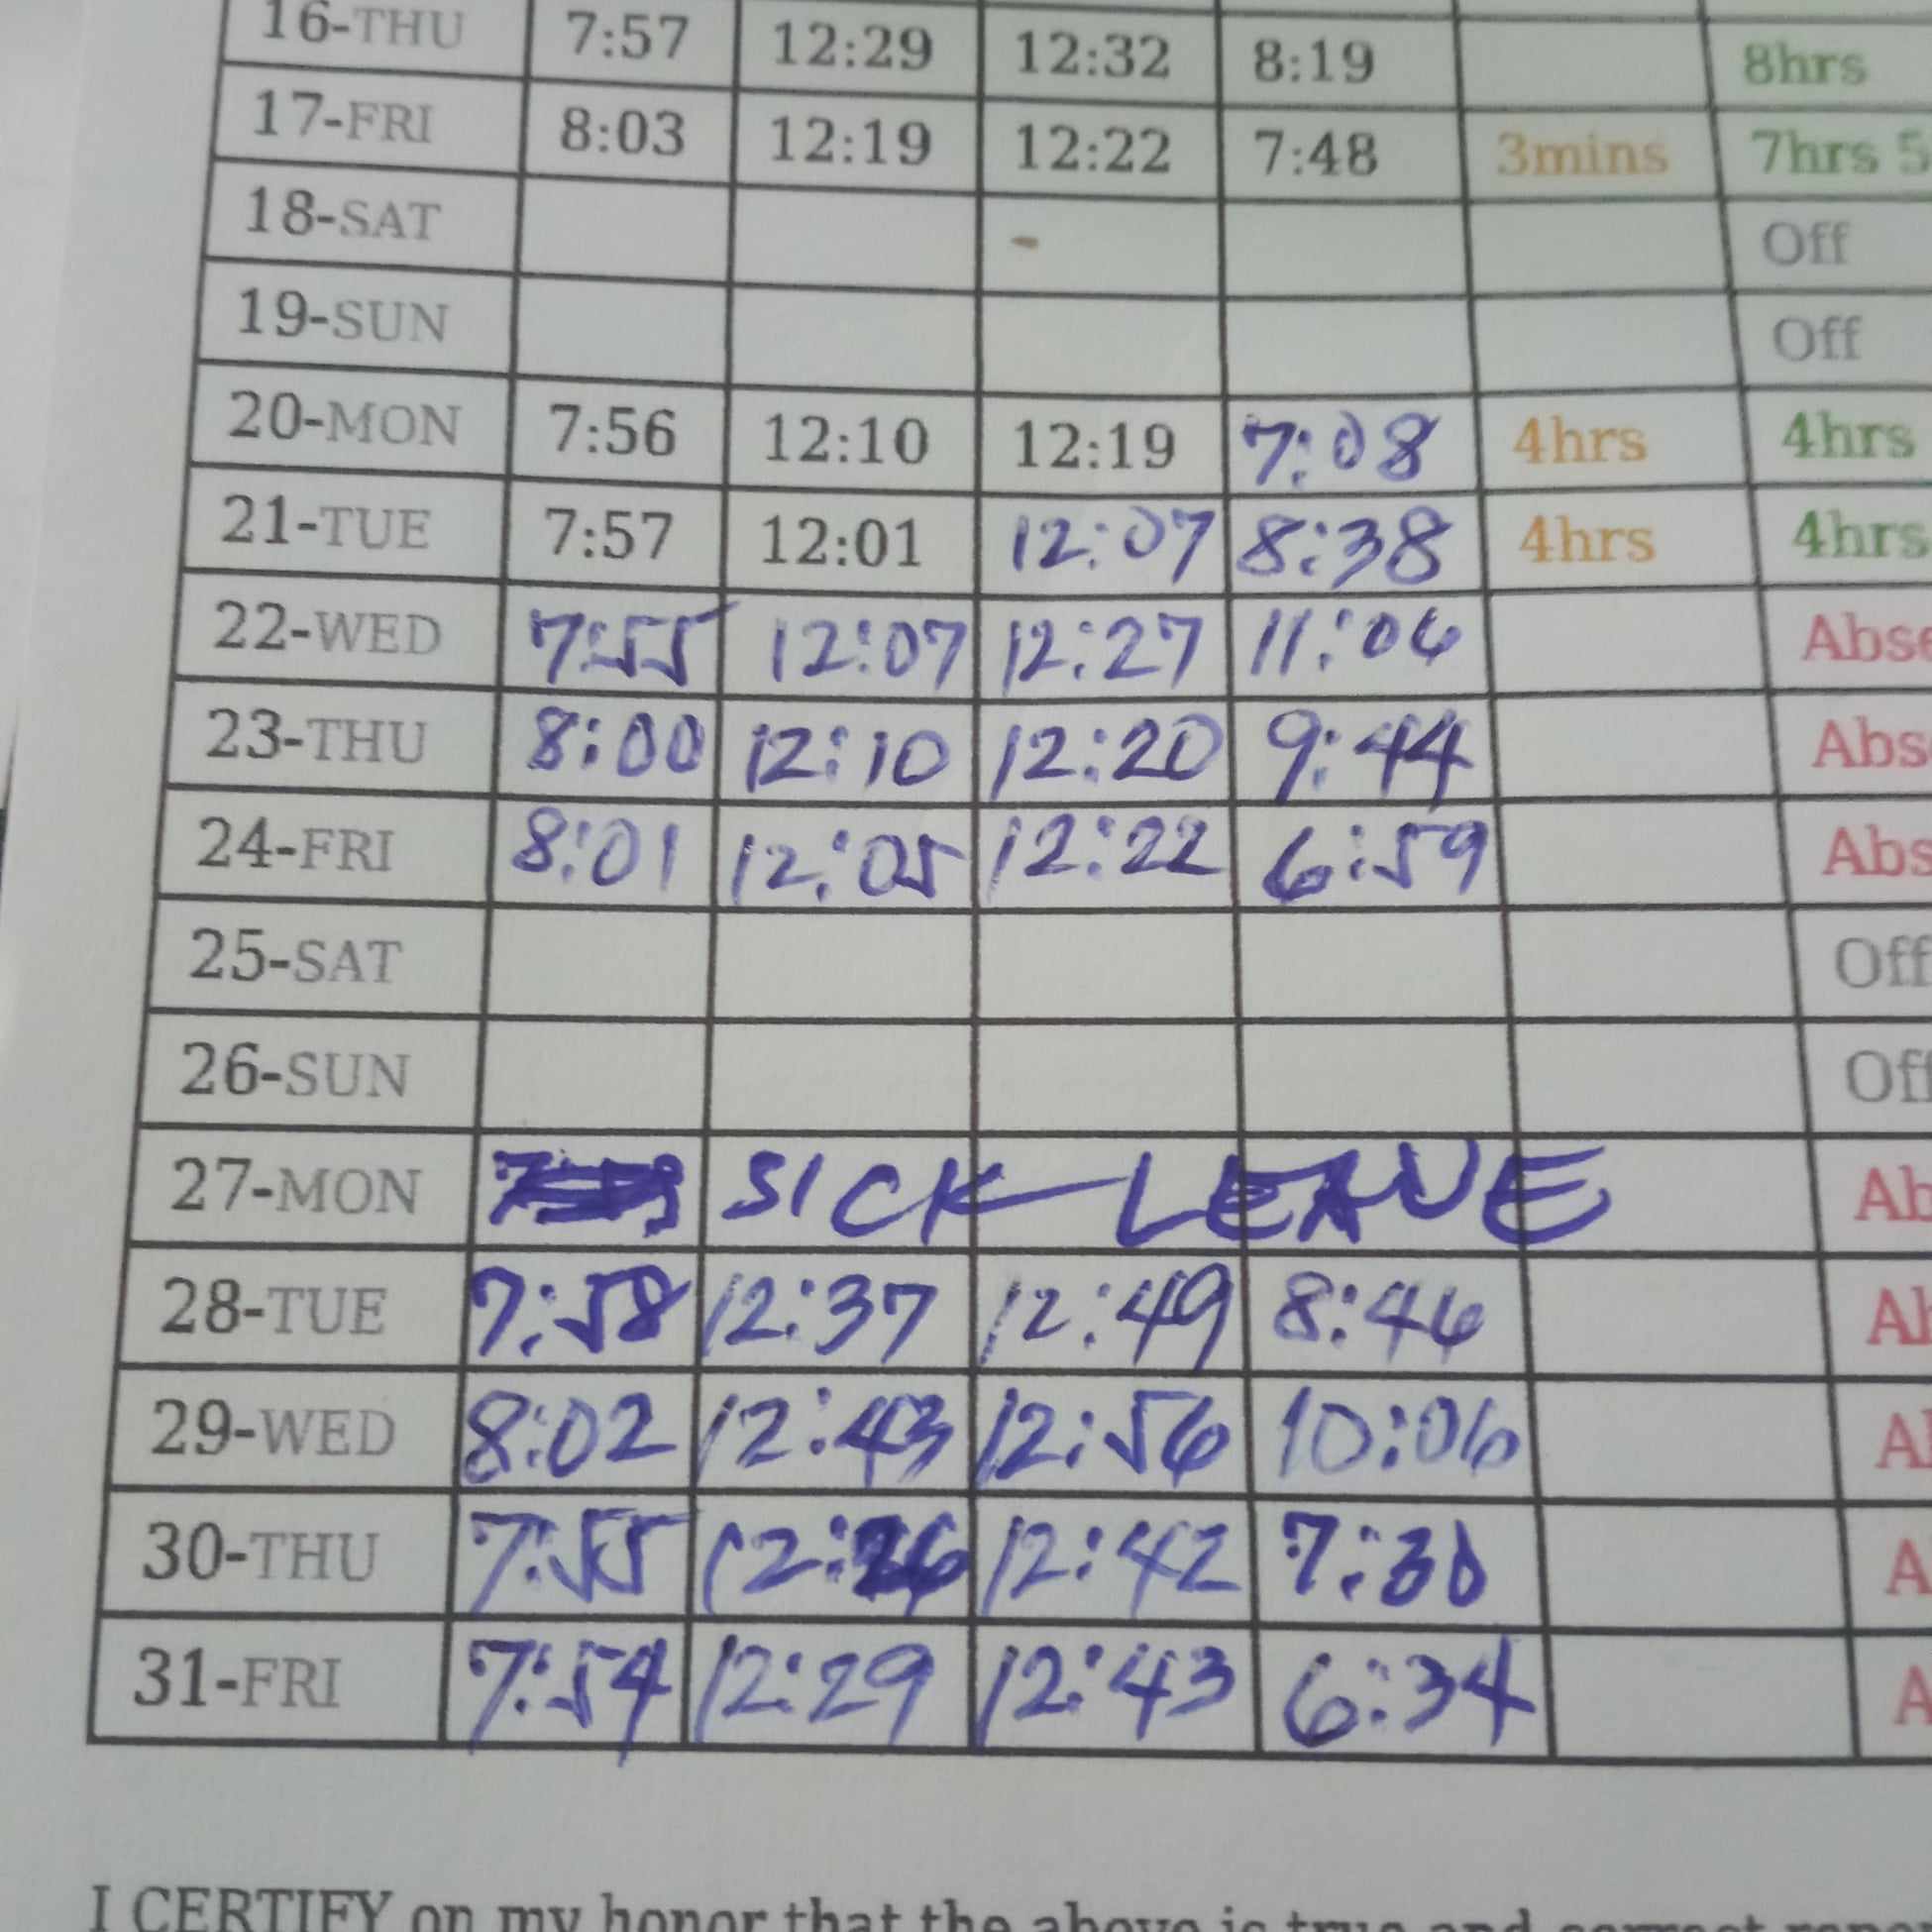 16-THU 7:57 12:29 12:32 8:19 8hrs
17-FRI 8:03 12:19 12:22 7:48 3mins 7hrs 5
18-SAT Off
19-SUN Off
20-MON 7:56 12:10 12:19 7:08 4hrs 4hrs
21-TUE 7:57 12:01 12:07 8:38 4hrs 4hrs
22-WED 7:55 12:07 12:27 11:06 Abse
23-THU 8:00 12:10 12:20 9:44 Abs
24-FRI 8:01 12:05 12:22 6:59 Abs
25-SAT Off
26-SUN Off
27-MON SICK LEAVE Ab
28-TUE 7:58 12:37 12:49 8:46 Ab
29-WED 8:02 12:43 12:56 10:06 A
30-THU 7:55 12:42 7:30 A
31-FRI 7:54 12:29 12:43 6:34 A
I CERTIFY on my honor that the above is true and correct